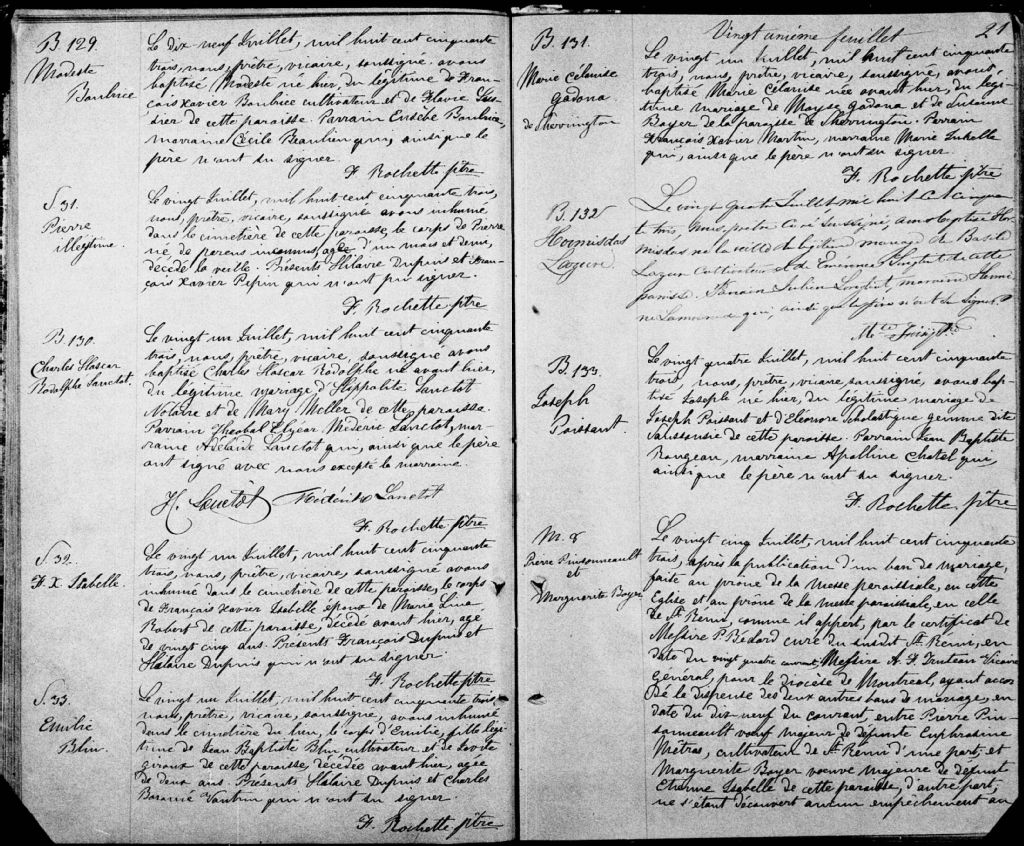 B. 129.
Modeste
Boubrice
Le dix neuf Juillet, mil huit cent cinquante
trois, nous, prêtre, vicaire, soussigné avons
baptisé Modeste né hier, du légitime de Fran-
çois Xavier Boubrice cultivateur et de Flavie
de cette paroisse. Parrain Eusèbe Boubrice,
marraine Cécile Beaulieu qui, ainsi que le
père n'ont su signer.
F. Rochette ptre
S 31.
Pierre
illégitime.
Le vingt Juillet, mil huit cent cinquante trois,
nous, prêtre, vicaire, soussigné avons inhumé
dans le cimetière de cette paroisse, le corps de Pierre
né de parens inconnus, agée d'un mois et demi,
décédé la veille. Présents Hilaire Dupuis et Fran-
çois Xavier Pepin qui n'ont pu signer.
F. Rochette ptre
B. 130.
Charles Hascar
Rodolphe Sanctot.
Le vingt un Juillet, mil huit cent cinquante
trois, nous, prêtre, vicaire, soussigné avons
baptisé Charles Hascar Rodolphe né avant hier,
du légitime mariage d'Hippolite Lanctot
Notaire et de Mary Meller de cette paroisse.
Parrain Elzéar Méderic Lanctot, mar-
raine Adélaïde Lanctot qui, ainsi que le père
ont signé avec nous excepté la marraine.
H. Lanctot Lanctot
F. Rochette ptre
S. 32.
F. X. Isabelle.
Le vingt un Juillet, mil huit cent cinquante
trois, nous, prêtre, vicaire, soussigné avons
inhumé dans le cimetière de cette paroisse, le corps
de François Xavier Isabelle époux de Marie Lina-
Robert de cette paroisse, décédé avant hier, agé
de vingt cinq ans. Présents François Dupuis et
Hilaire Dupuis qui n'ont su signer.
F. Rochette ptre
S. 33.
Emilie
Blin.
Le vingt un Juillet, mil huit cent cinquante trois,
nous, prêtre, vicaire, soussigné, avons inhumé
dans le cimetière du lieu, le corps d'Emilie, fille légi
time de Jean Baptiste Blin cultivateur et de
Giroux de cette paroisse, décédée avant hier, agée
de deux ans. Présents Hilaire Dupuis et Charles
qui n'ont su signer.
F. Rochette ptre
Vingt unième feuillet 21
B. 131.
Marie Célanise
Gadona
de Sherrington
Le vingt un Juillet, mil huit cent cinquante
trois, nous, prêtre, vicaire, soussigné, avons,
baptisé Marie Célanise née avant hier, du légi-
time mariage de Moyse Gadona et de Susanne
Boyer de la paroisse de Sherrington. Parrain
François Xavier Martin, marraine Marie
qui, ainsi que le père n'ont su signer.
F. Rochette ptre
B. 132
Hormisdas
Lazure
Le vingt quatre Juillet mil huit cent cinquan-
te trois, nous, prêtre Curé soussigné, avons baptisé Hor-
misdas né la veille du légitime mariage de Basile
Lazure Cultivateur et de Emérence de cette
paroisse. Parrain Julien marraine Hermi-
ne qui, ainsi que le père n'ont su signer.
B. 133.
Joseph
Poissant.
Le vingt quatre Juillet, mil huit cent cinquante
trois, nous, prêtre, vicaire, soussigné, avons bap-
tisé Joseph né hier, du légitime mariage de
Joseph Poissant et d'Eléonore Scholastique gemme dite
de cette paroisse. Parrain Jean Baptiste
Rangeau, marraine Apolline Chatel qui,
ainsi que le père n'ont su signer.
F. Rochette ptre
M. 8
Pierre Pinsonneault
et
Marguerite Boyer
Le vingt cinq Juillet, mil huit cent cinquante
trois, après la publication d'un ban de mariage,
faite au prône de la messe paroissiale, en cette
Eglise et au prône de la messe paroissiale, en celle
de St. Remi, comme il appert, par le certificat de
Messire P. Bédard curé du susdit St. Rémi, en
date du vingt quatre courant, Messire A. F. Truteau Vicaire
Général, pour le diocèse de Montréal, ayant accor-
dé la dispense des deux autres bans de mariage, en
date du dix neuf du courant, entre Pierre Pin-
sonneault veuf majeur de défunte Euphrosine
Mêtras, cultivateur de St. Remi d'une part, et
Marguerite Boyer veuve majeure de défunt
Etienne Isabelle de cette paroisse, d'autre part,
ne s'étant découvert aucun empêchement au